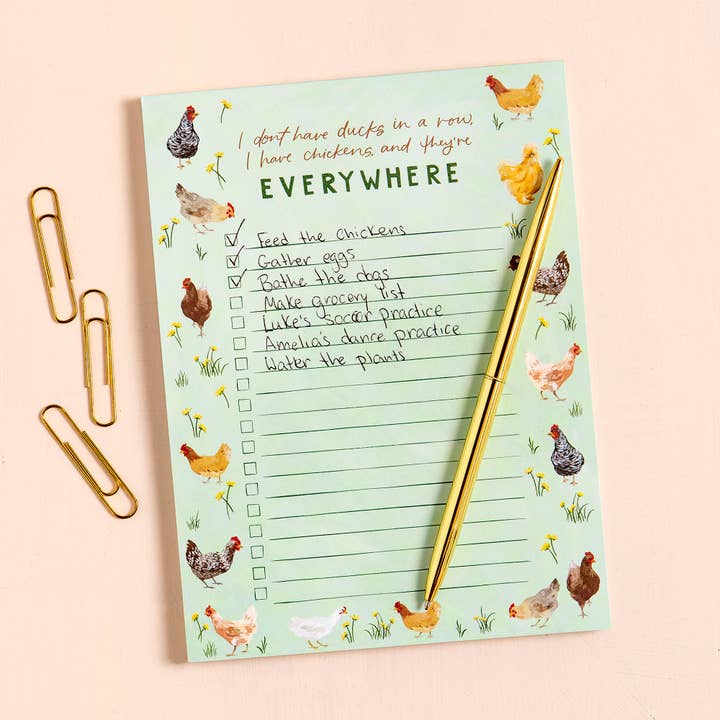 I don't have ducks in a row,
I have chickens, and they're
EVERYWHERE
Feed the chickens
Gather eggs
Bathe the dogs
Make grocery list
Luke's soccor practice
Amelia's dance practice
Water the plants